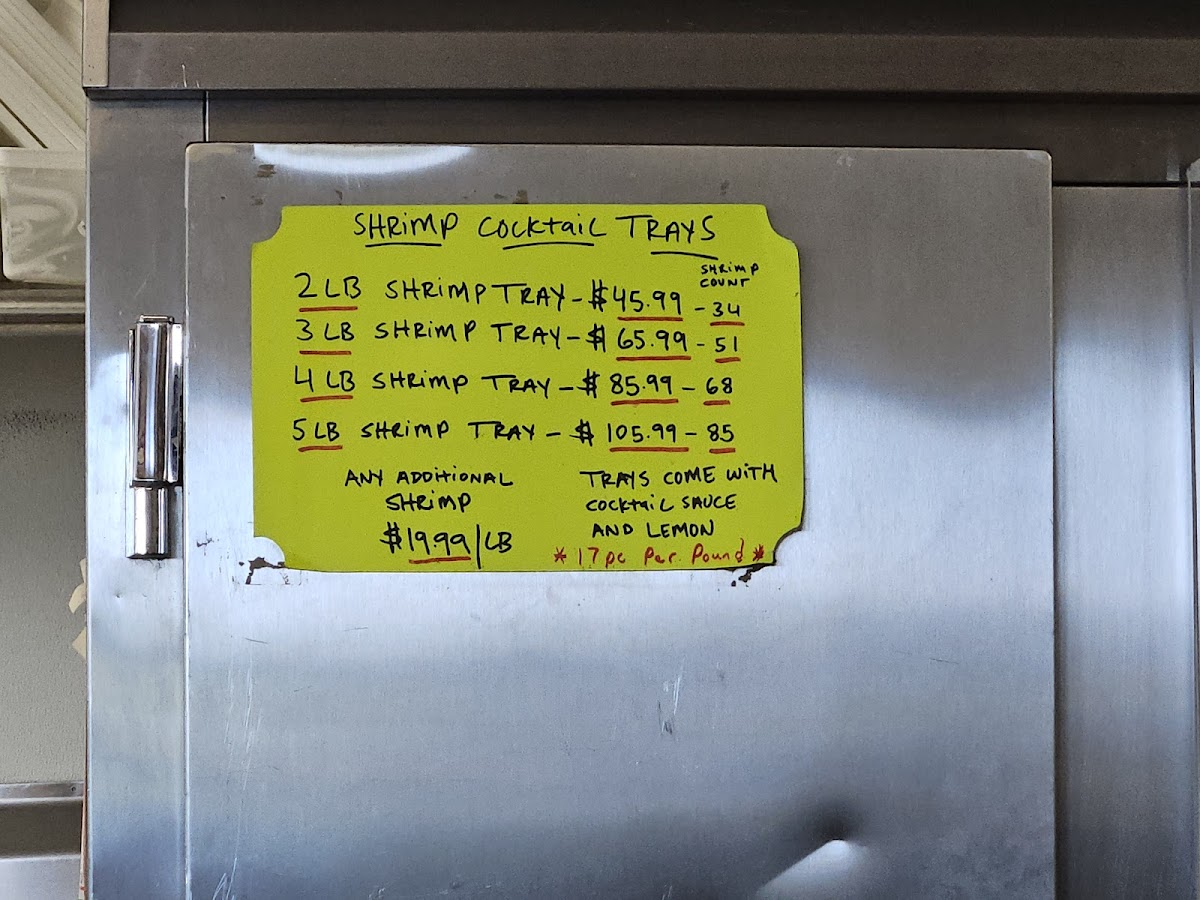 SHRIMP COCKTAIL TRAYS
SHRIMP
COUNT
2 LB SHRIMP TRAY - $45.99 - 34
3 LB SHRIMP TRAY - $65.99 - 51
4 LB SHRIMP TRAY - $85.99 - 68
5 LB SHRIMP TRAY - $105.99 - 85
ANY ADDITIONAL
SHRIMP
$19.99/LB
TRAYS COME WITH
COCKTAIL SAUCE
AND LEMON
* 17pc Per. Pound *